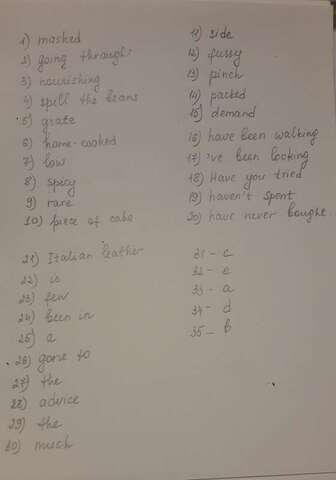 1) mashed
2) going through
3) nourishing
4) spill the beans
5) grate
6) home-cooked
7) low
8) spicy
9) rare
10) piece of cake
11) side
12) fussy
13) pinch
14) packed
15) demand
16) have been walking
17) 've been looking
18) Have you tried
19) haven't spent
20) have never bought
21) Italian leather
22) is
23) few
24) been in
25) a
26) gone to
27) the
28) advice
29) the
30) much
31 - c
32 - e
33 - a
34 - d
35 - b